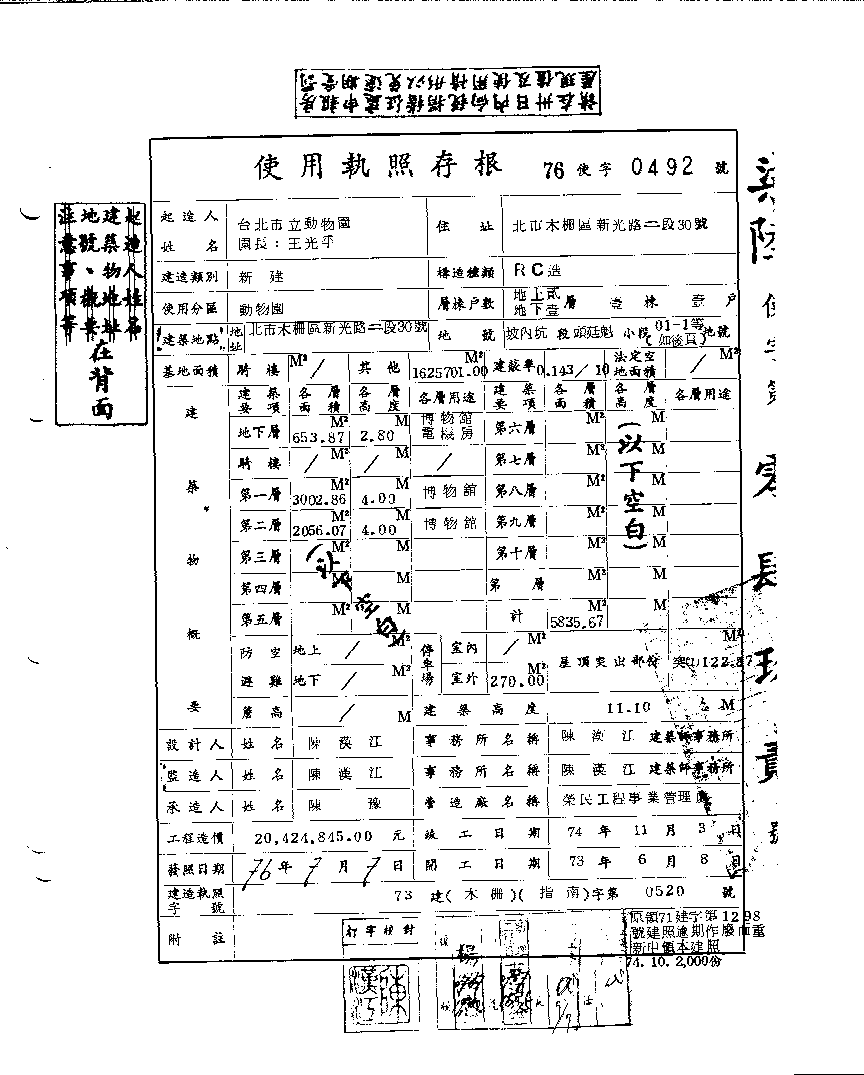 請在卅日內向稅捐稽征處申報房
屋現值及使用情形以免逾期受罰
使用執照存根 76 使字 0492 號
起造人姓名
建築物地址
地號、概要
注意事項等
在背面
起造人姓名 台北市立動物園 園長：王光平 住址 北市木柵區新光路二段30號
建造類別 新建 構造種類 RC造
使用分區 動物園 層棟戶數 地上貳地下壹層 壹棟 壹戶
建築地點 地址 北市木柵區新光路二段30號 地號 坡內坑段頭廷魁小段 01-1等(如後頁)地號
基地面積 騎樓 M² / 其他 M² 1625701.00 建蔽率 0.143/10 法定空地面積 / M²
建築物概要
建築要項 各層面積 各層高度 各層用途 建築要項 各層面積 各層高度 各層用途
地下層 653.87 M² 2.80 M 博物館電機房 第六層 M² M
騎樓 / M² / M / 第七層 M² M
第一層 3002.86 M² 4.00 M 博物館 第八層 M² M
第二層 2056.07 M² 4.00 M 博物館 第九層 M² M
第三層 M² M 第十層 M² M
第四層 M² M 第 層 M² M
第五層 M² M 計 5835.67 M² M
(以下空白)
(以下空白)
防空避難 地上 / M² 停車場 室內 / M² 屋頂突出部份 突(1)122.87 M²
地下 / M² 室外 270.00 M²
簷高 / M 建築高度 11.10 M
設計人 姓名 陳漢江 事務所名稱 陳漢江建築師事務所
監造人 姓名 陳漢江 事務所名稱 陳漢江建築師事務所
承造人 姓名 陳豫 營造廠名稱 榮民工程事業管理處
工程造價 20,424,845.00 元 竣工日期 74年11月3日
發照日期 76年7月7日 開工日期 73年6月8日
建造執照字號 73 建(木柵)(指南)字第 0520 號
附註
原領71建字第1298
號建照逾期作廢而重
新申領本建照
74.10.2,000份
打字核對
使字第零肆玖貳號